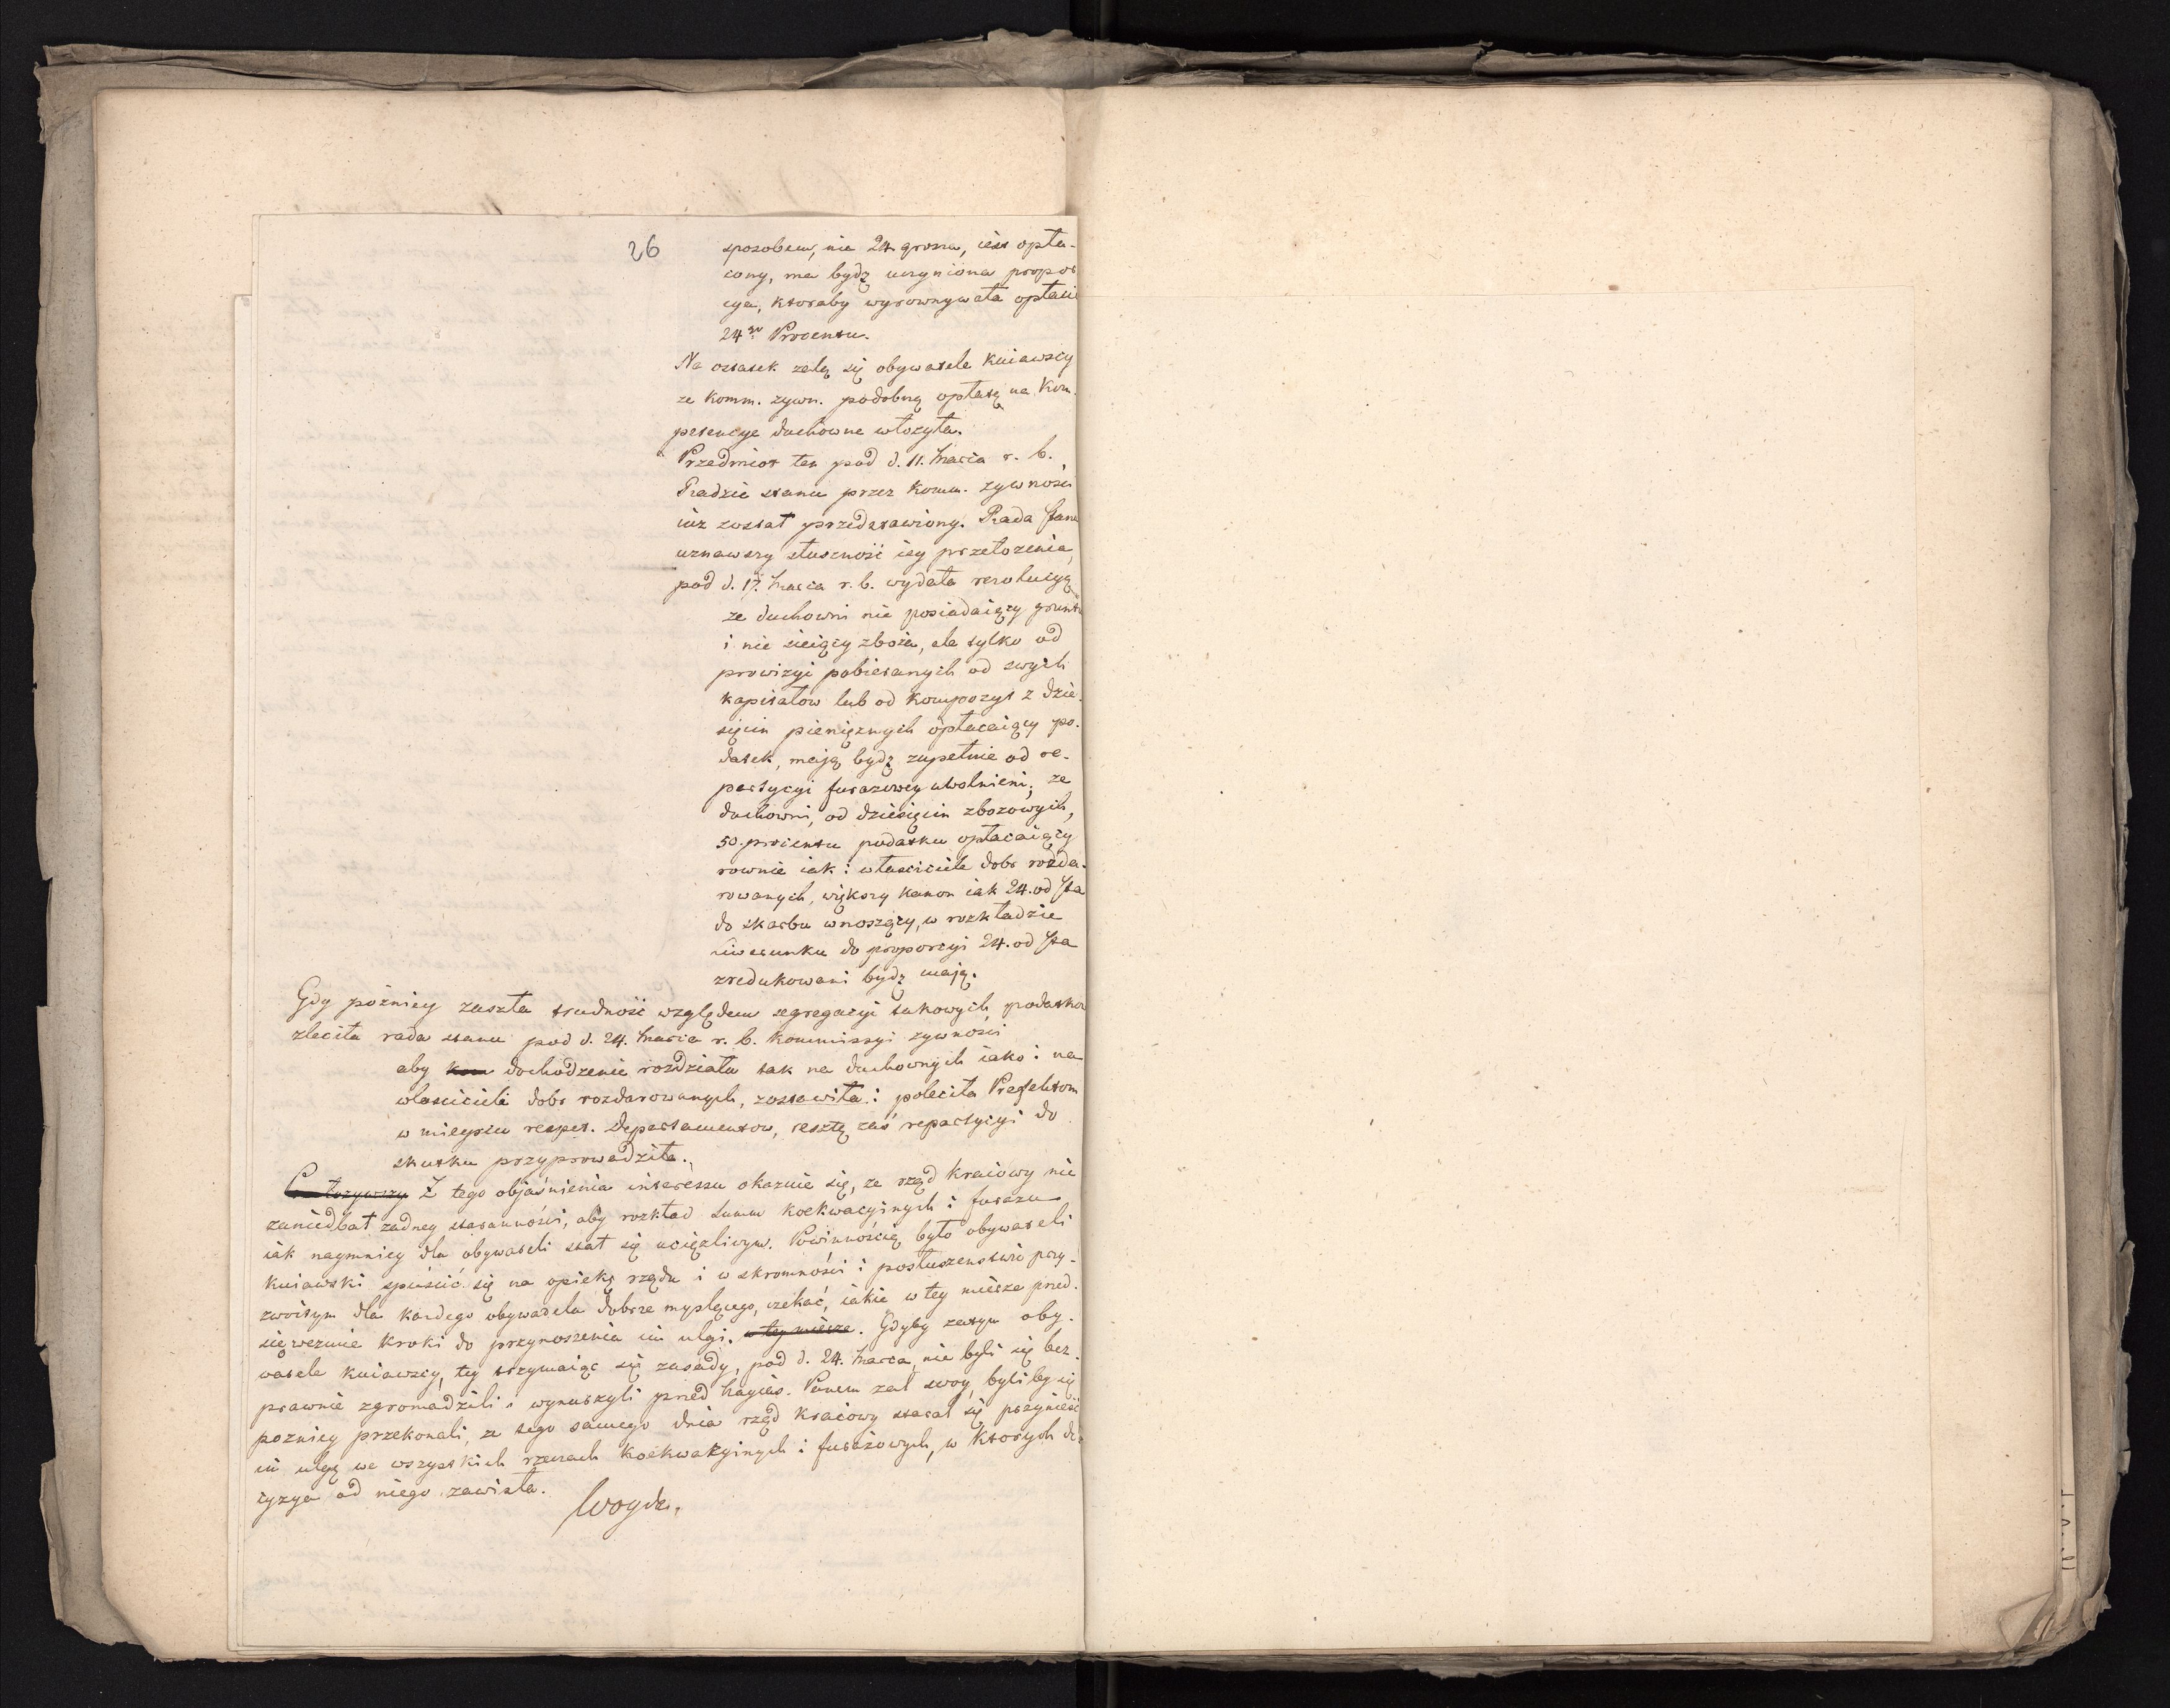 26
sposobem, nie 24 grosza, iest opła-
cony, ma bydz uczyniona propor
cya, ktoraby wyrownywała opłacie
24ru Procentu.
Na ostatek zalą się obywatele Kuiawscy
ze Komm. zywn. podobną opłatę na Kom-
petencye duchowne włozyła.
Przedmiot ten pod d. 11. Marca r. b.,
Radzie stanu przez Komm. zywnosci
iuz został przedstawiony. Rada stanu
uznawszy słuszność iey przełozenia,
pod d. 17. Marca r. b. wydała rezolucyą
ze duchowni nie posiadaiący gruntu
i nie sieiący zboża, ale tylko od
prowizyi pobieranych od swych
kapitałow lub od kompozyt z dzie-
sięcin pieniężnych opłacaiący po-
datek, mają bydź zupełnie od re-
partycyi furazowey uwolnieni; ze
duchowni, od dziesięcin zbozowych,
50. procentu podatku opłacaiący
rownie iak i własciciele dobr rozda-
rowanych, większy kanon iak 24. od sta
do skarbu wnoszący, w rozkładzie
liwerunku do proporcyi 24. od sta
zredukowani bydź mają.
Gdy pózniey zaszła trudność względem segregacyi takowych podatkow
zleciła rada stanu pod d. 24. Marca r. b. Kommissyi zywności
aby kom dochodzenie rozdziału tak na duchownych iako i na
włascicieli dobr rozdarowanych, zostawiła i poleciła Prefektom
w mieyscu respet. Departamentow, resztę zaś repartycyi do
skutku przyprowadziła.
Z tego objaśnienia interessu okazuie się, ze rząd kraiowy nie
zaniedbał zadney staranności, aby rozkład summ koekwacyinych i furazu
iak naymniey dla obywateli stał się uciązliwym. Powinnością było obywateli
kuiawski spuścić się na opiekę rządu i w skromności i posłuszenstwie przy-
zwoitym dla kazdego obywatela dobrze myslącego, czekać, iakie w tey mierze przed-
sięwezmie kroki do przynoszenia im ulgi. w tey mierze. Gdyby zatym oby-
watele kuiawscy, tey trzymaiąc się zasady, pod d. 24. Marca, nie byli się bez-
prawnie zgromadzili i wynurzyli przed Nayias. Panem zal swoy, byliby się
pozniey przekonali, ze tego samego dnia rząd kraiowy starał się przynieść
im ulgę we wszystkich rzeczach koekwacyinych i furażowych, w ktorych de-
cyzya od niego zawisła.
Woyda.